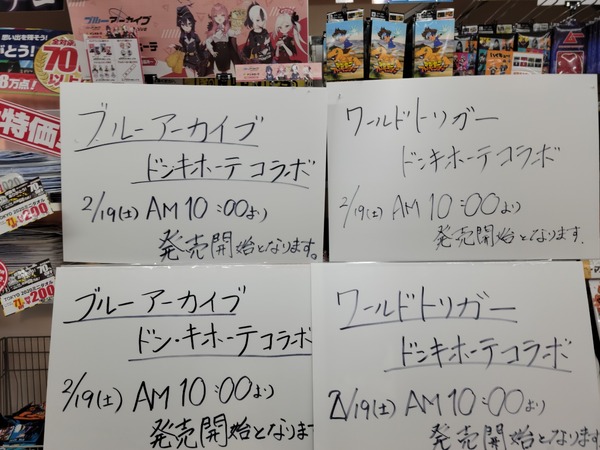 ブルーアーカイブ
ドンキホーテコラボ
2/19(土) AM10:00より
発売開始となります。
ワールドトリガー
ドンキホーテコラボ
2/19(土) AM10:00より
発売開始となります.
ブルーアーカイブ
ドン・キホーテコラボ
2/19(土) AM10:00より
発売開始となりま
ワールドトリガー
ドンキホーテコラボ
2/19(土) AM10:00より
発売開始となります
ブルーアーカイブ
70
特価
TOKYO 2020ミニタオル
¥200
¥200